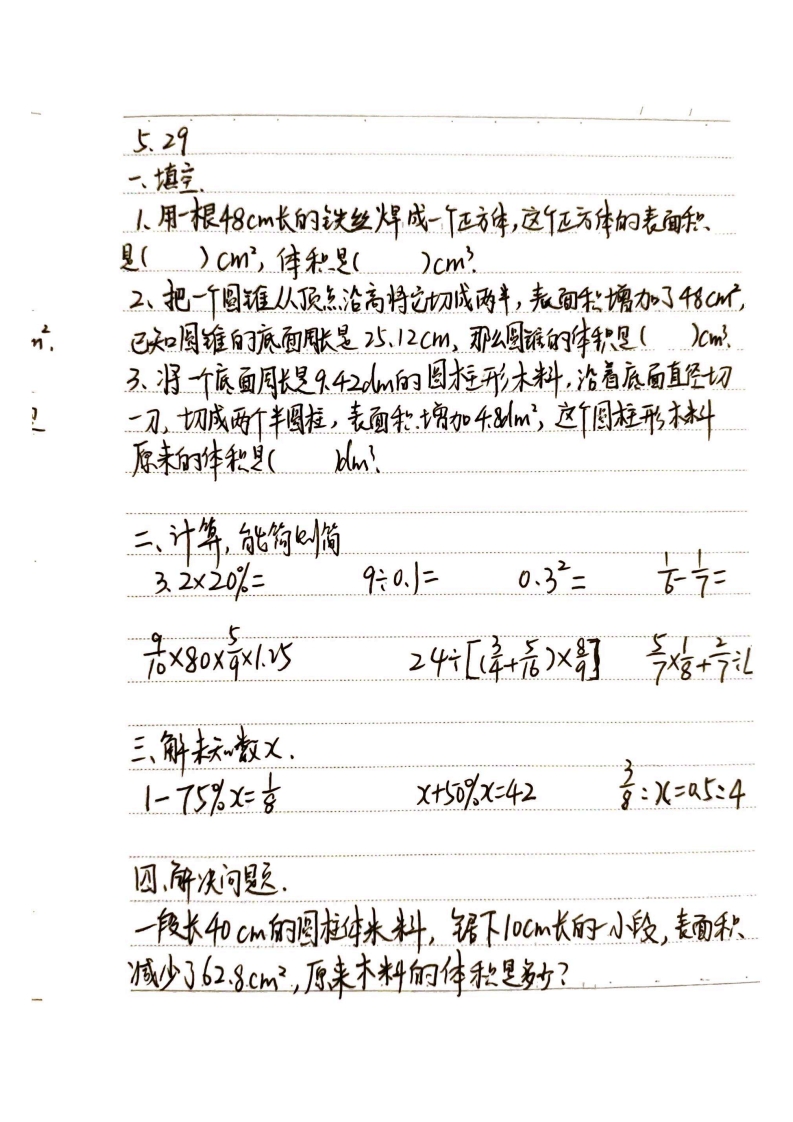 5.29
一、填空.
1、用一根48cm长的铁丝焊成一个正方体,这个正方体的表面积
是(    )cm²,体积是(    )cm³.
2、把一个圆锥从顶点沿高将它切成两半,表面积增加了48cm²,
n².
已知圆锥的底面周长是25.12cm,那么圆锥的体积是(    )cm³.
3、将一个底面周长是9.42dm的圆柱形木料,沿着底面直径切
一刀,切成两个半圆柱,表面积增加4.8dm²,这个圆柱形木料
原来的体积是(    )dm³.
二、计算,能简则简
3.2×20%=    9÷0.1=    0.3²=    1/6-1/7=
9/10×80×5/9×1.25    24÷[(3/4+5/16)×8/9]    5/7×1/8+2/7÷
三、解未知数x.
1-75%x=1/8    x+50%x=42    3/8:x=0.5:4
四、解决问题.
一段长40cm的圆柱体木料,锯下10cm长的一小段,表面积
减少了62.8cm²,原来木料的体积是多少?